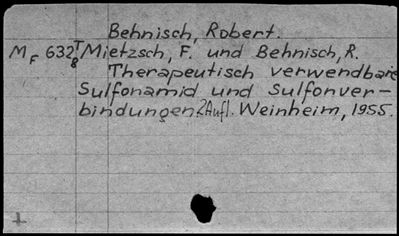 Behnisch, Robert.
M F 632 T 8 Mietzsch, F. und Behnisch, R.
Therapeutisch verwendbare
Sulfonamid und Sulfonver-
bindungen. 2. Aufl. Weinheim, 1955.